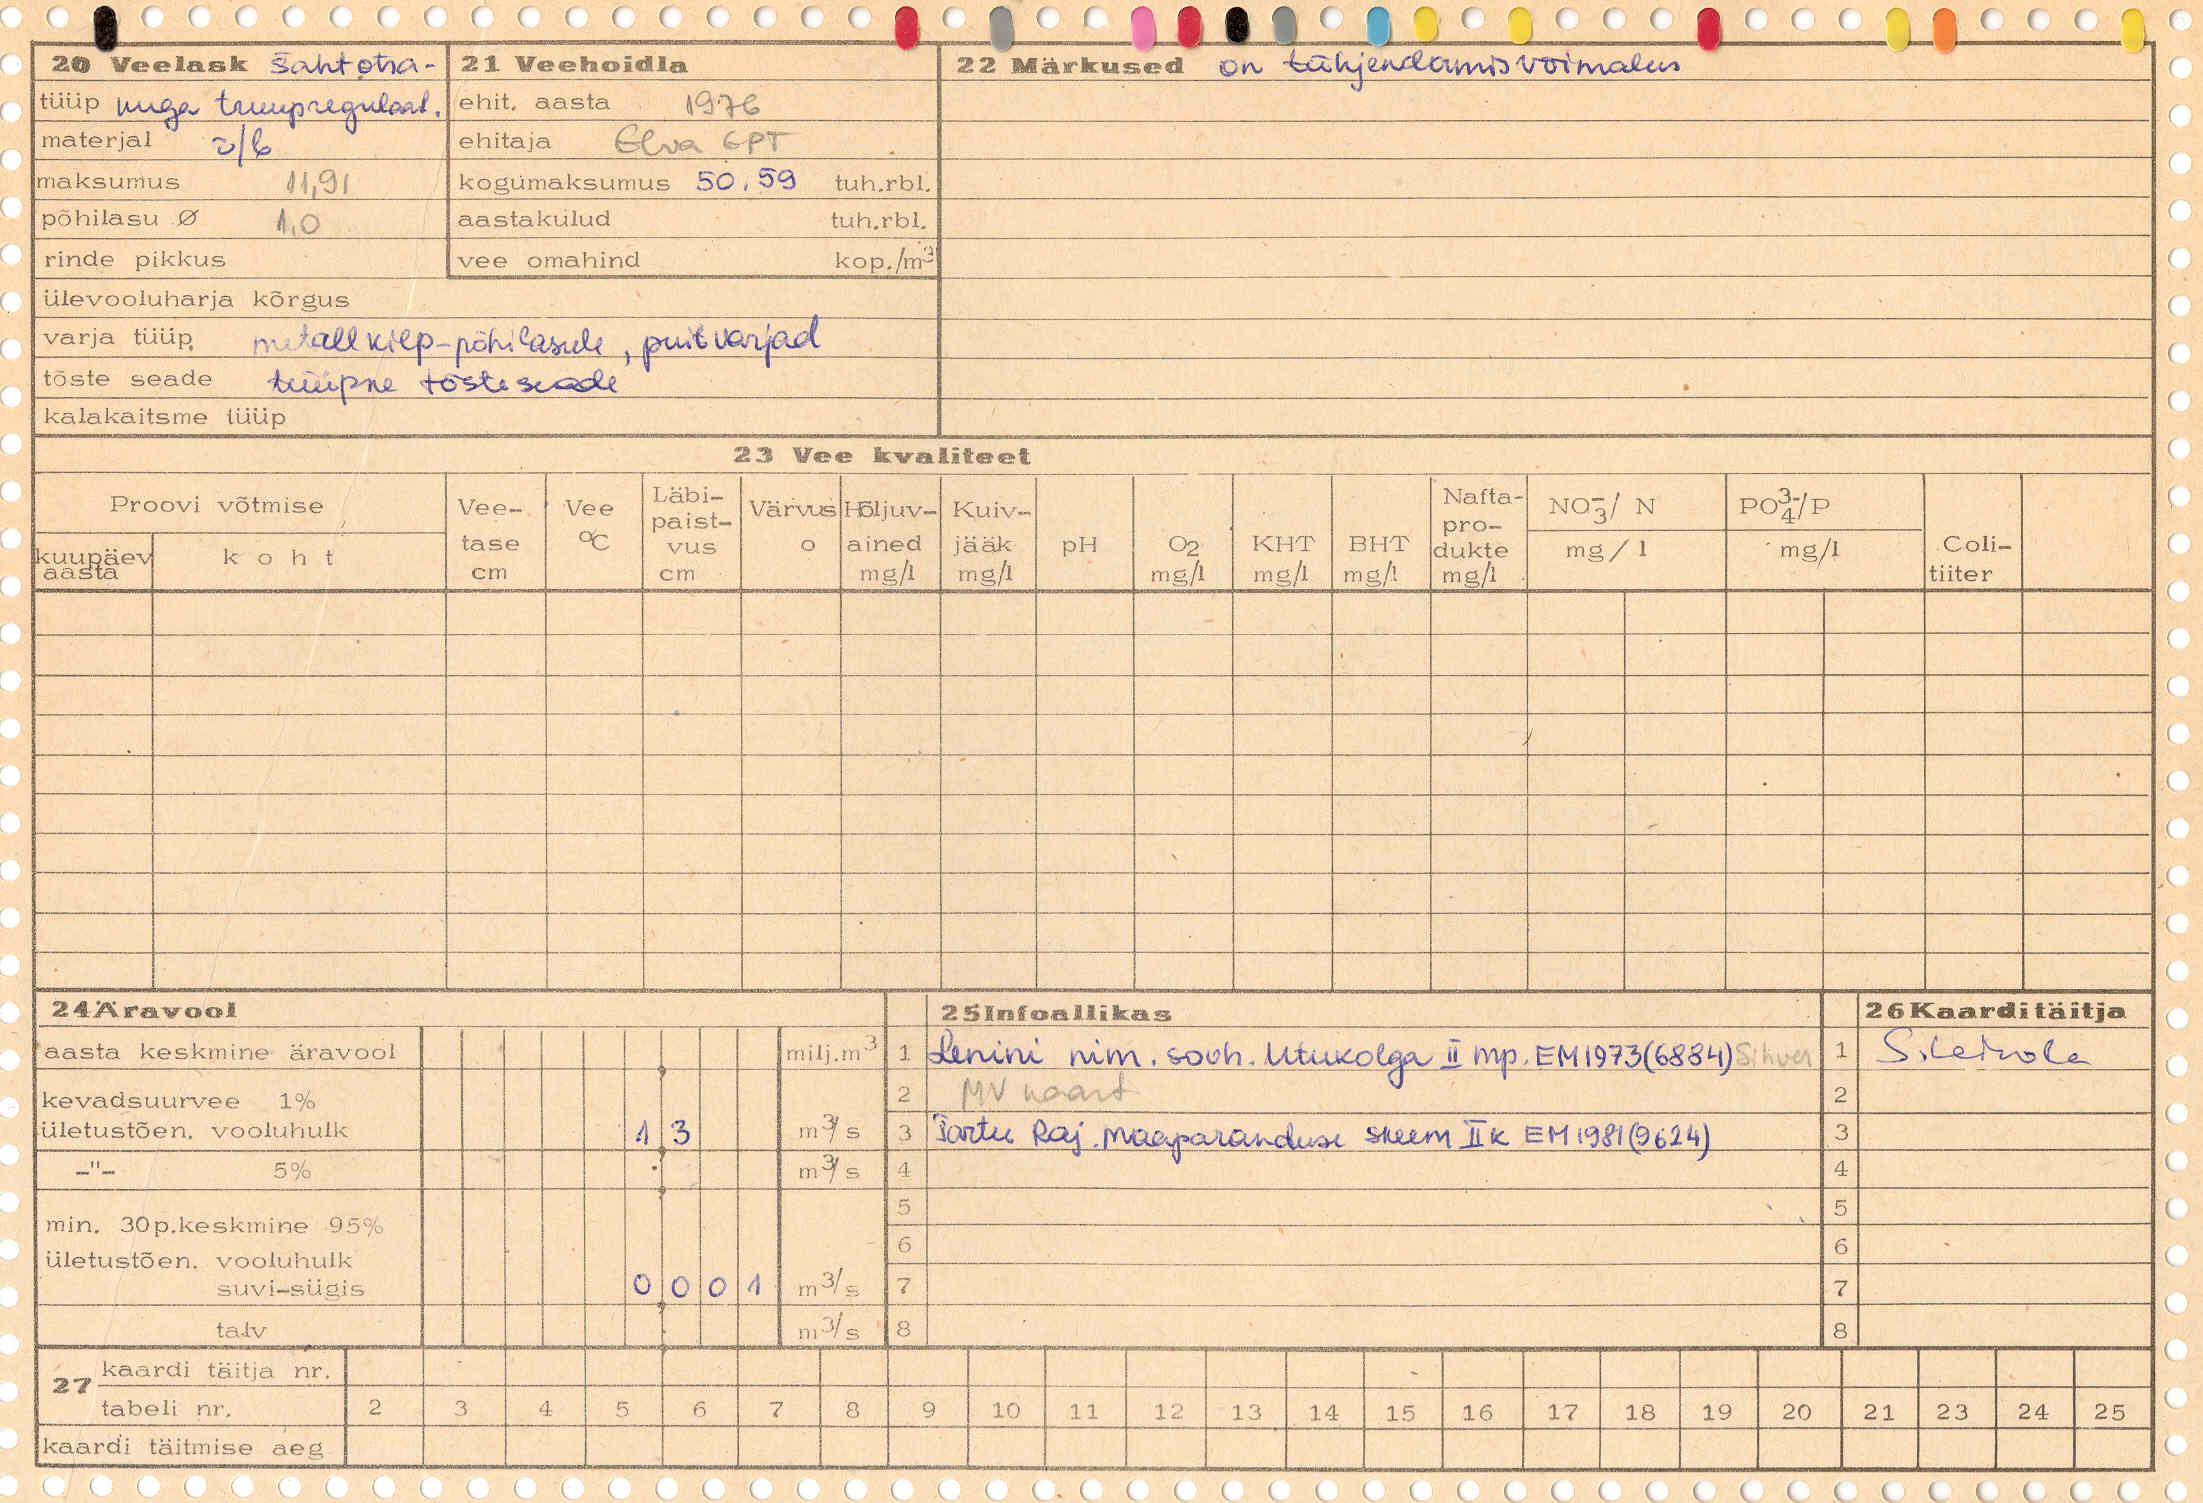 20 Veelask Šahtotsa-
tüüp kuga truupregulaat.
materjal r/b
maksumus 11,91
põhilasu Ø 1,0
rinde pikkus
ülevooluharja kõrgus
varja tüüp. metallkilp-põhilasule, puitvarjad
tõste seade tüüpne tõsteseade
kalakaitsme tüüp
21 Veehoidla
ehit. aasta 1976
ehitaja Elva EPT
kogumaksumus 50,59 tuh.rbl.
aastakulud tuh.rbl.
vee omahind kop./m³
22 Märkused on tühjendamisvõimalus
23 Vee kvaliteet
Proovi võtmise
kuupäev aasta
koht
Vee-tase cm
Vee °C
Läbi-paist-vus cm
Värvus o
Hõljuv-ained mg/l
Kuiv-jääk mg/l
pH
O₂ mg/l
KHT mg/l
BHT mg/l
Nafta-pro-dukte mg/l
NO₃⁻/ N mg/l
PO₄³⁻/P mg/l
Coli-tiiter
24 Äravool
aasta keskmine äravool milj.m³
kevadsuurvee 1%
ületustõen. vooluhulk 1 3 m³/s
-"- 5% m³/s
min. 30p.keskmine 95%
ületustõen. vooluhulk
suvi-sügis 0 0 0 1 m³/s
talv m³/s
25 Infoallikas
1 Lenini nim. sovh. Utukolga II mp. EM1973(6884) Sihver
2 MV kaart
3 Tartu Raj. maaparanduse skeem IIk EM1981(9624)
4
5
6
7
8
26 Kaarditäitja
1
2
3
4
5
6
7
8
27 kaardi täitja nr.
tabeli nr. 2 3 4 5 6 7 8 9 10 11 12 13 14 15 16 17 18 19 20 21 23 24 25
kaardi täitmise aeg